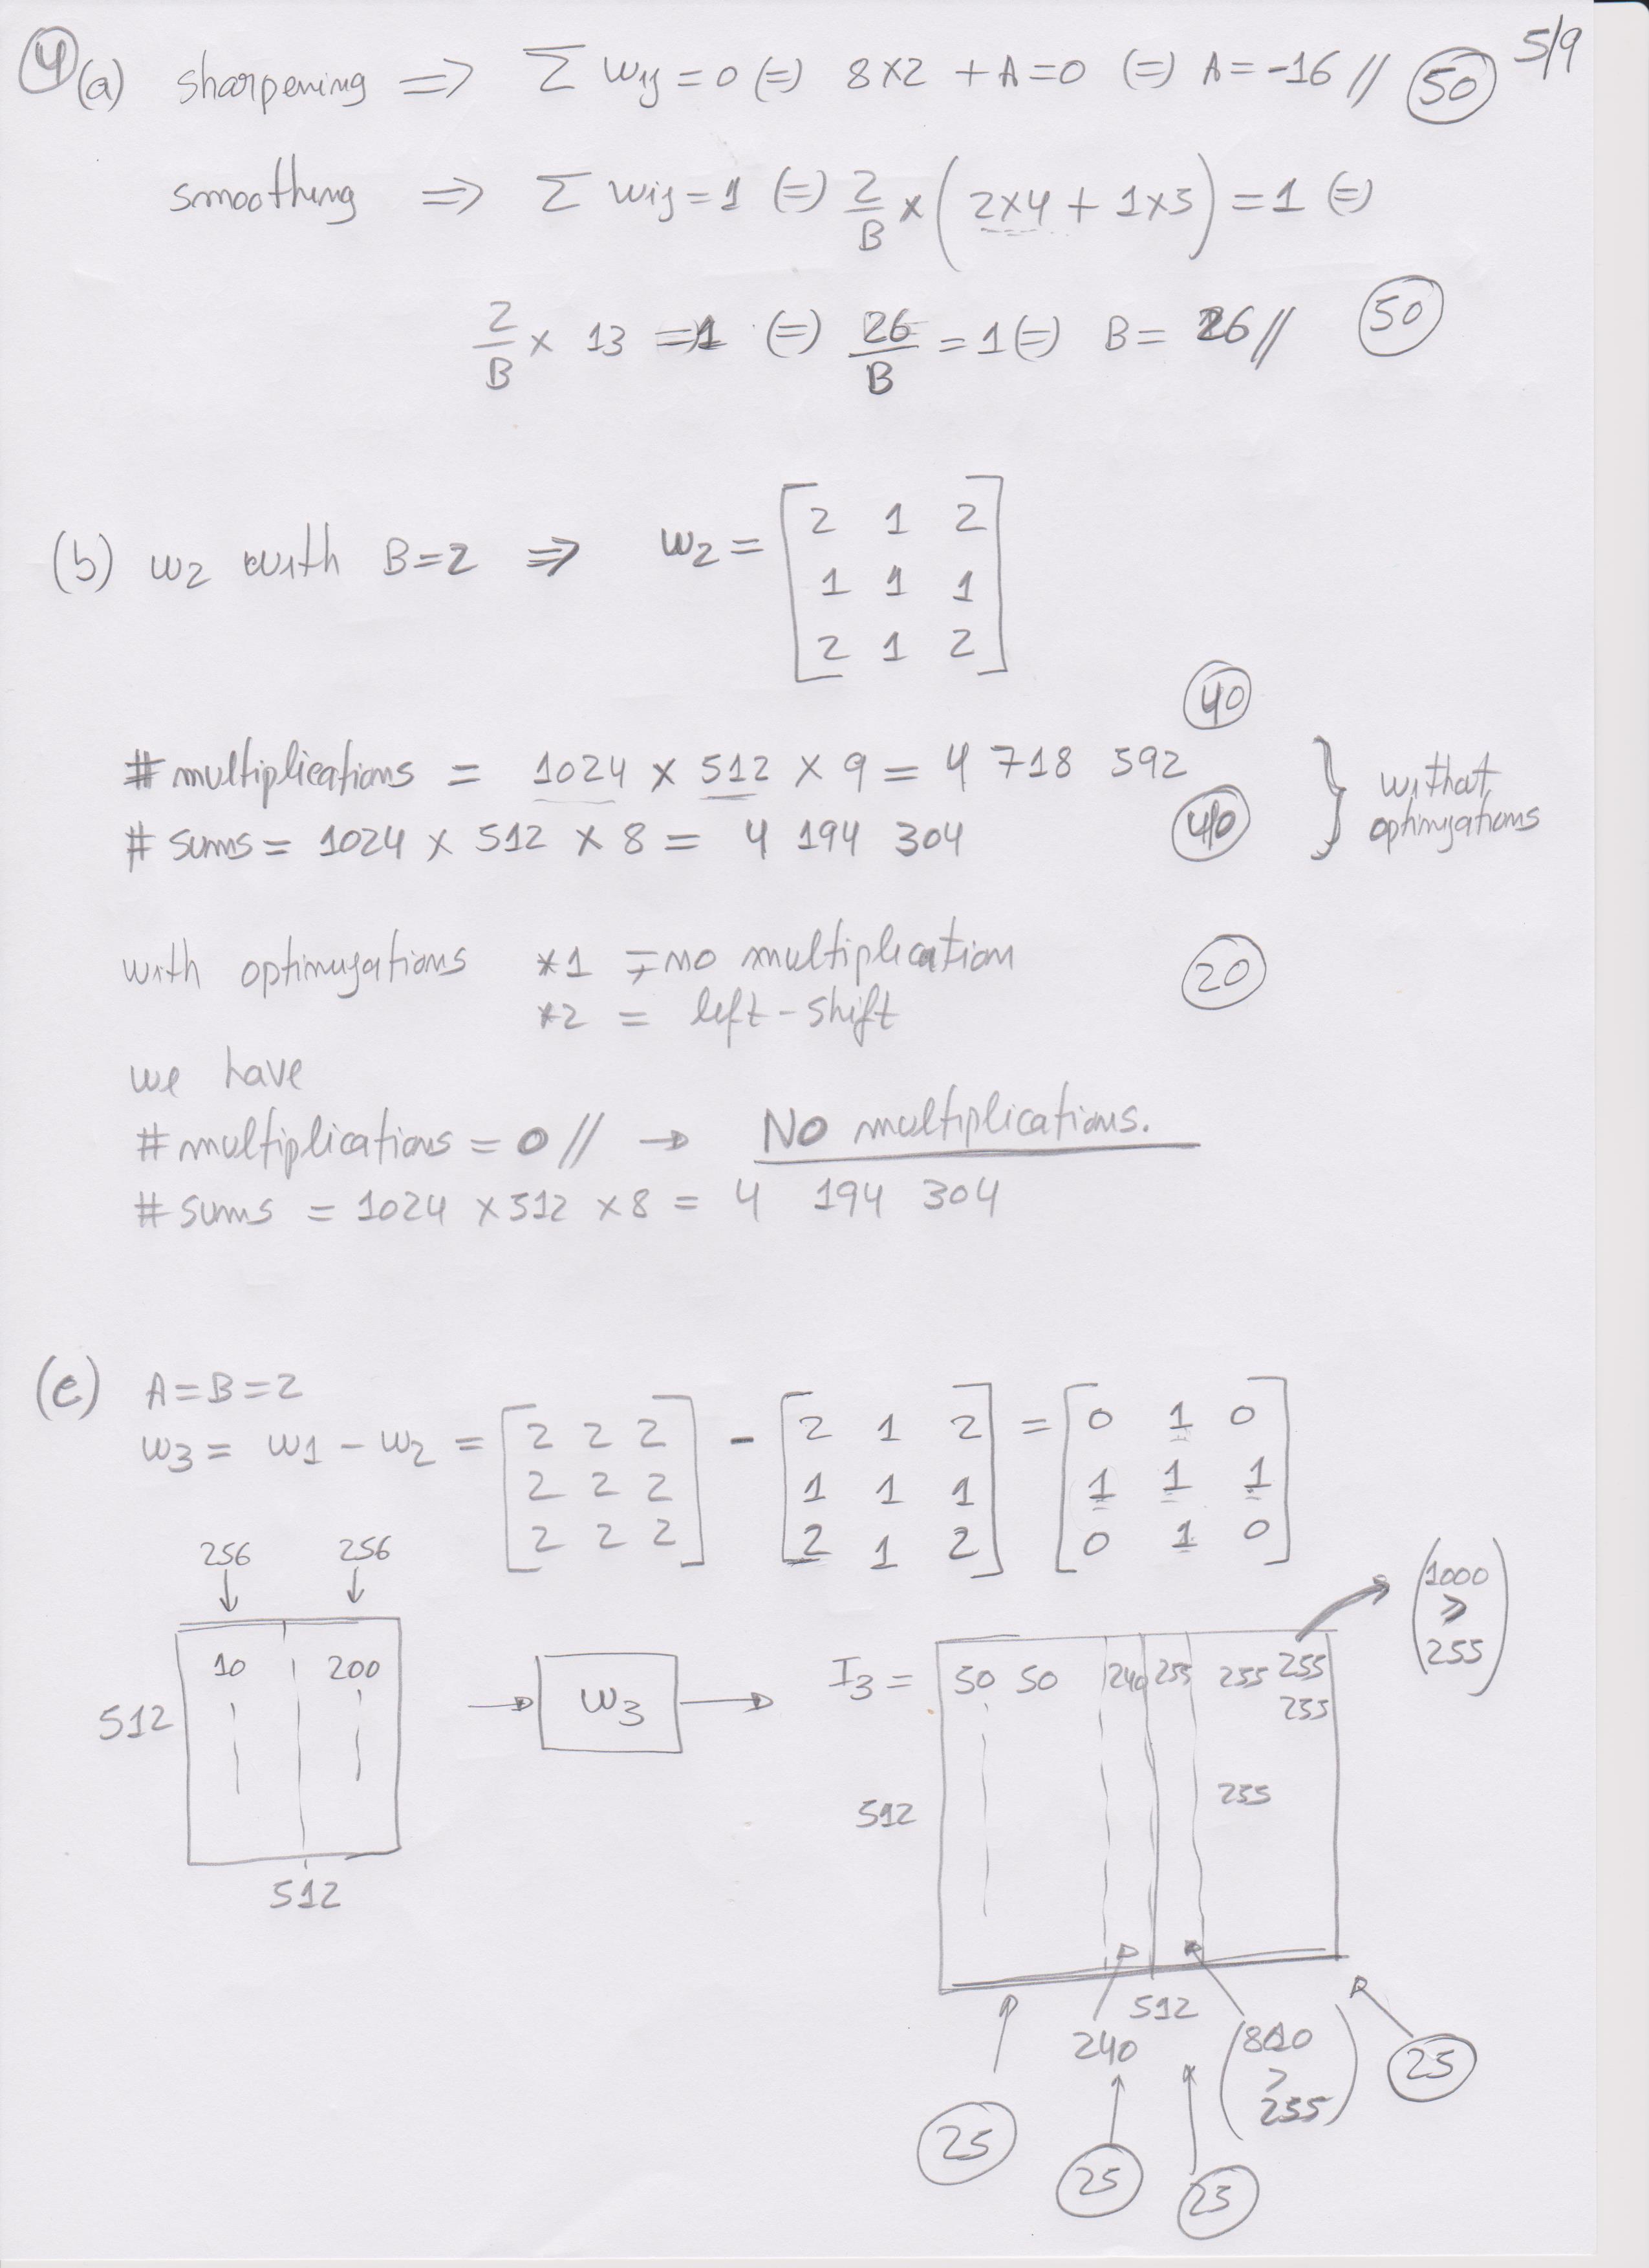 5/9
4 (a) sharpening => Σ wij = 0 (=) 8x2 + A = 0 (=) A = -16 // 50
smoothing => Σ wij = 1 (=) 2/B x (2x4 + 1x5) = 1 (=)
2/B x 13 = 1 (=) 26/B = 1 (=) B = 26 // 50
(b) w2 with B=2 => w2 = [2 1 2
1 1 1
2 1 2]
40
# multiplications = 1024 x 512 x 9 = 4 718 592
# sums = 1024 x 512 x 8 = 4 194 304 40 } without optimizations
with optimizations *1 = no multiplication 20
*2 = left-shift
we have
# multiplications = 0 // → No multiplications.
# sums = 1024 x 512 x 8 = 4 194 304
(c) A=B=2
w3 = w1 - w2 = [2 2 2 - [2 1 2 = [0 1 0
2 2 2 1 1 1 1 1 1
2 2 2] 2 1 2] 0 1 0]
256 256
10 200
512
512
w3
I3 = 50 50 240 255 255 255
255
255
(1000
≥
255)
512
512
240
(810
>
255)
25
25
25
25